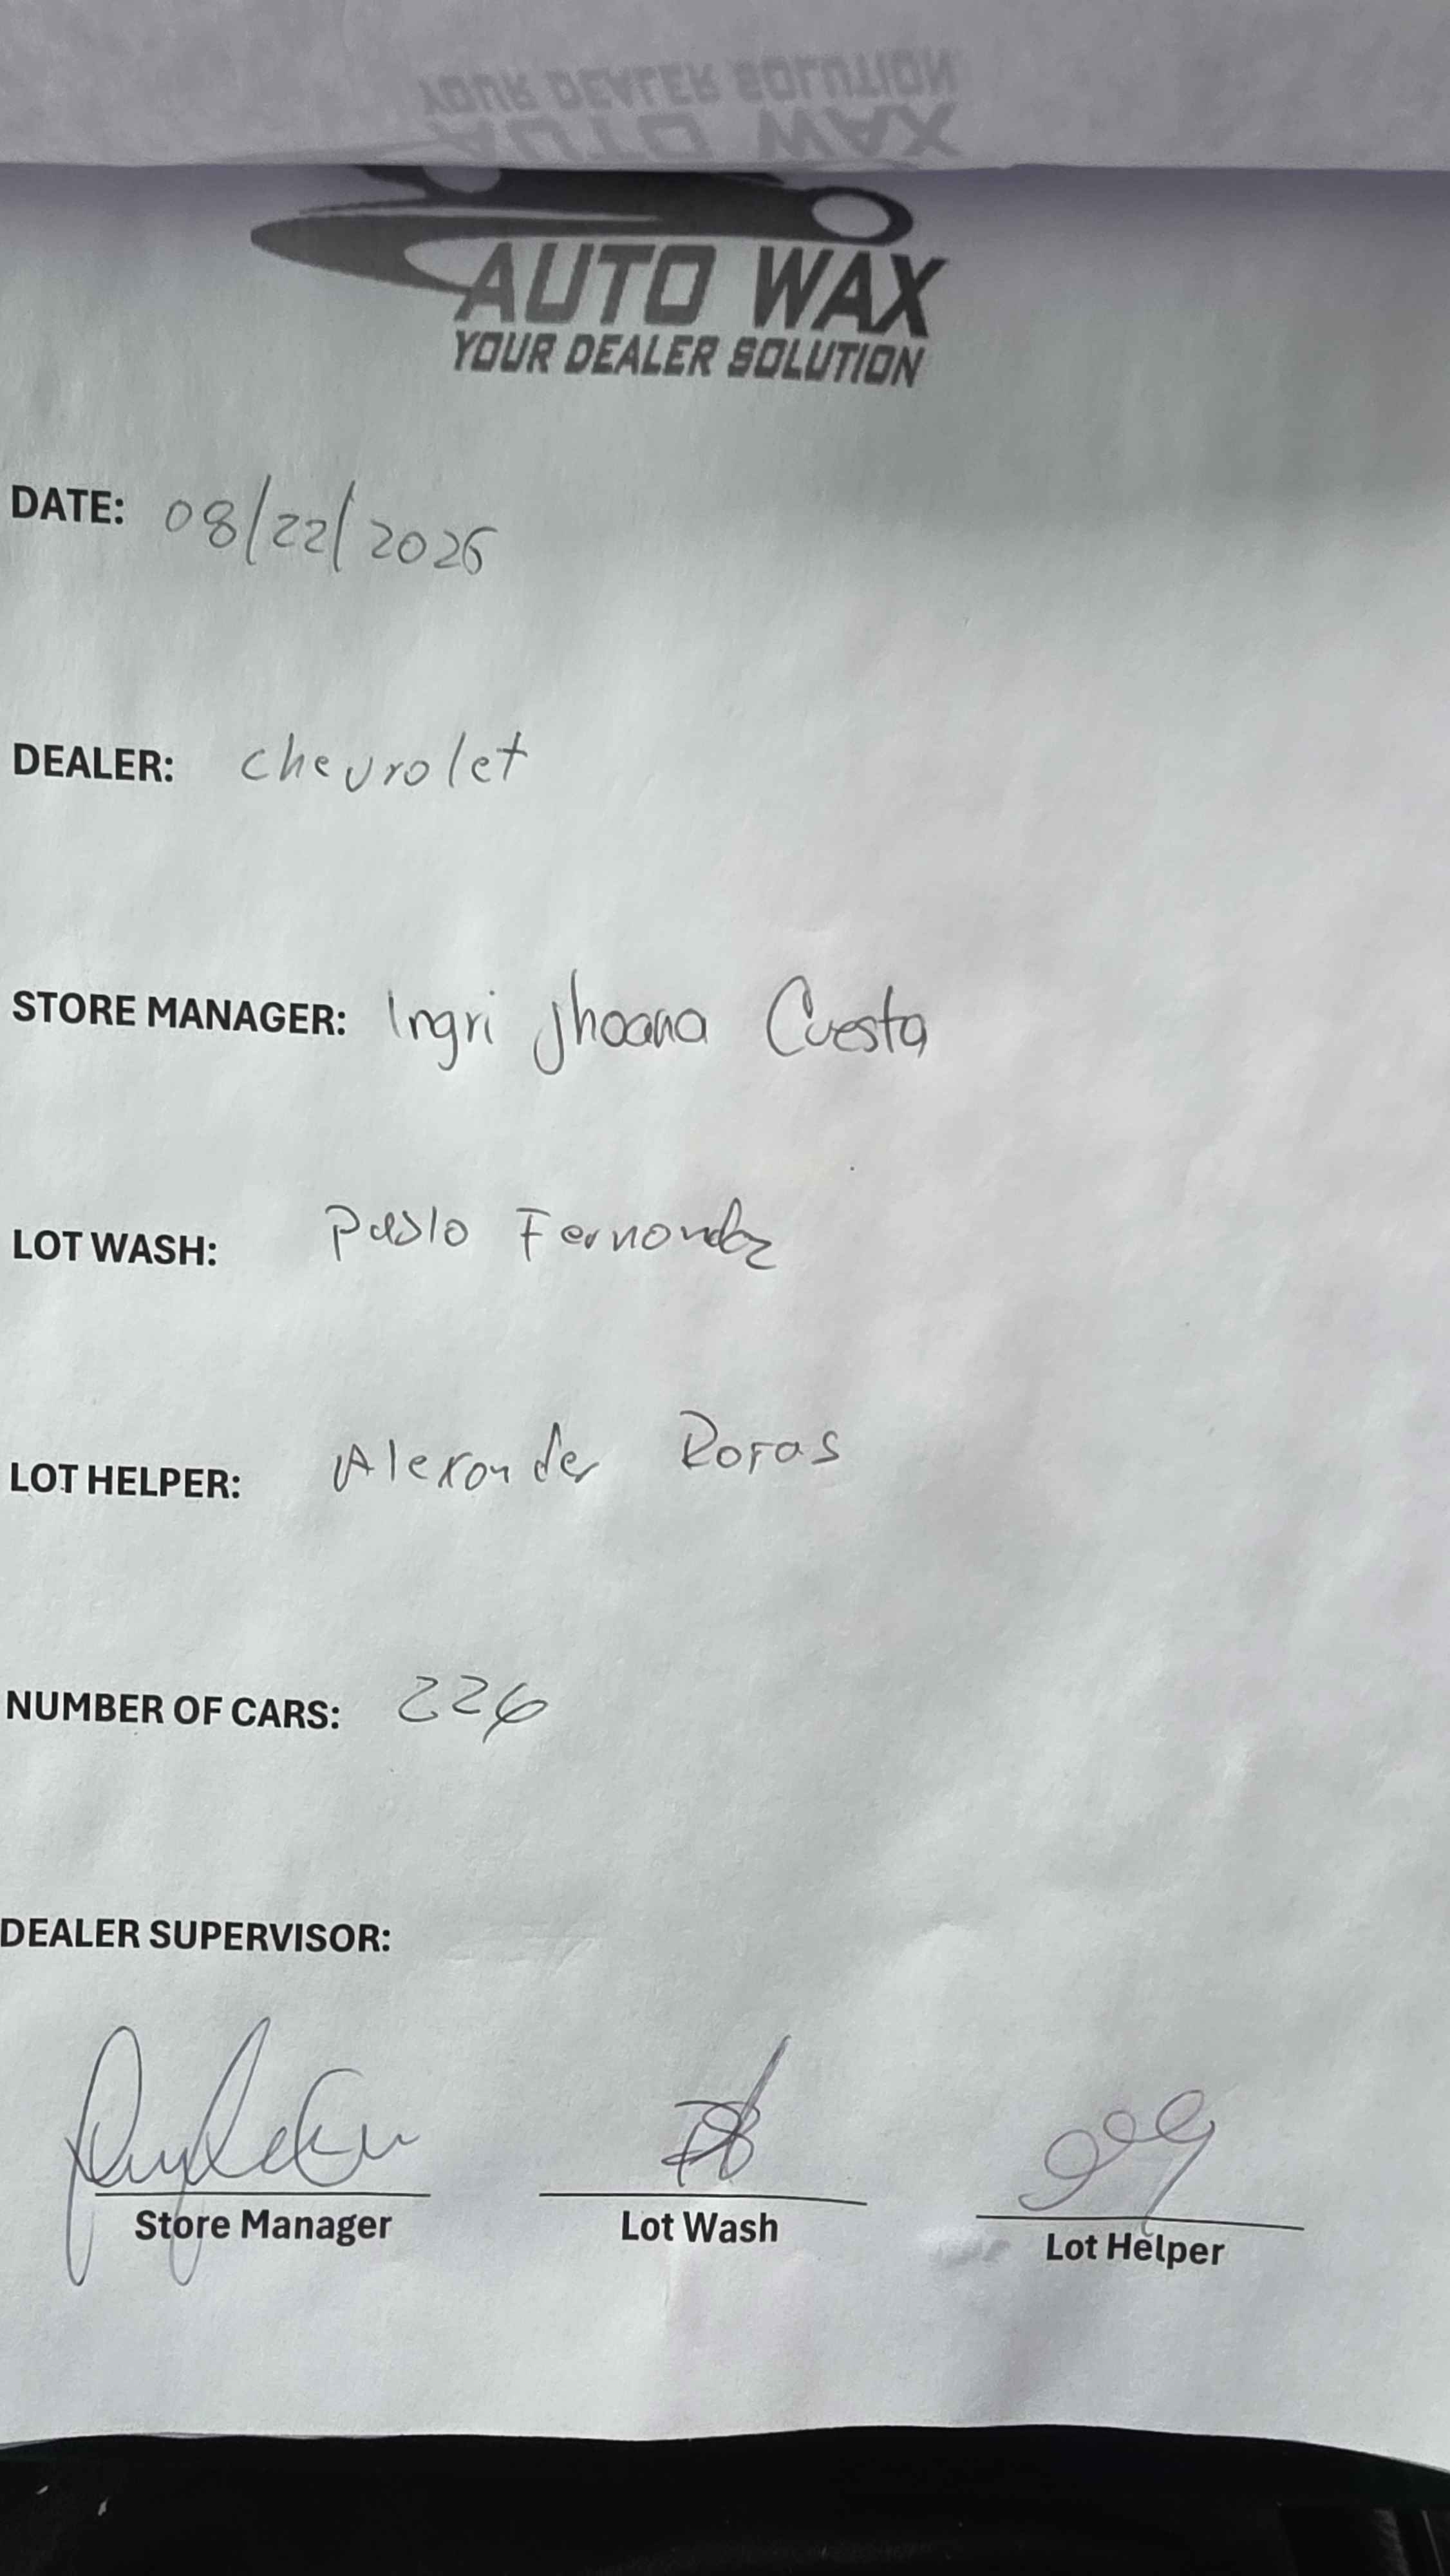 YOUR DEALER SOLUTION
AUTO WAX
AUTO WAX
YOUR DEALER SOLUTION
DATE: 08/22/2026
DEALER: chevrolet
STORE MANAGER: Ingri jhoana Cuesta
LOT WASH: Pablo Fernandez
LOT HELPER: Alexander Rojas
NUMBER OF CARS: 226
DEALER SUPERVISOR:
Store Manager Lot Wash Lot Helper